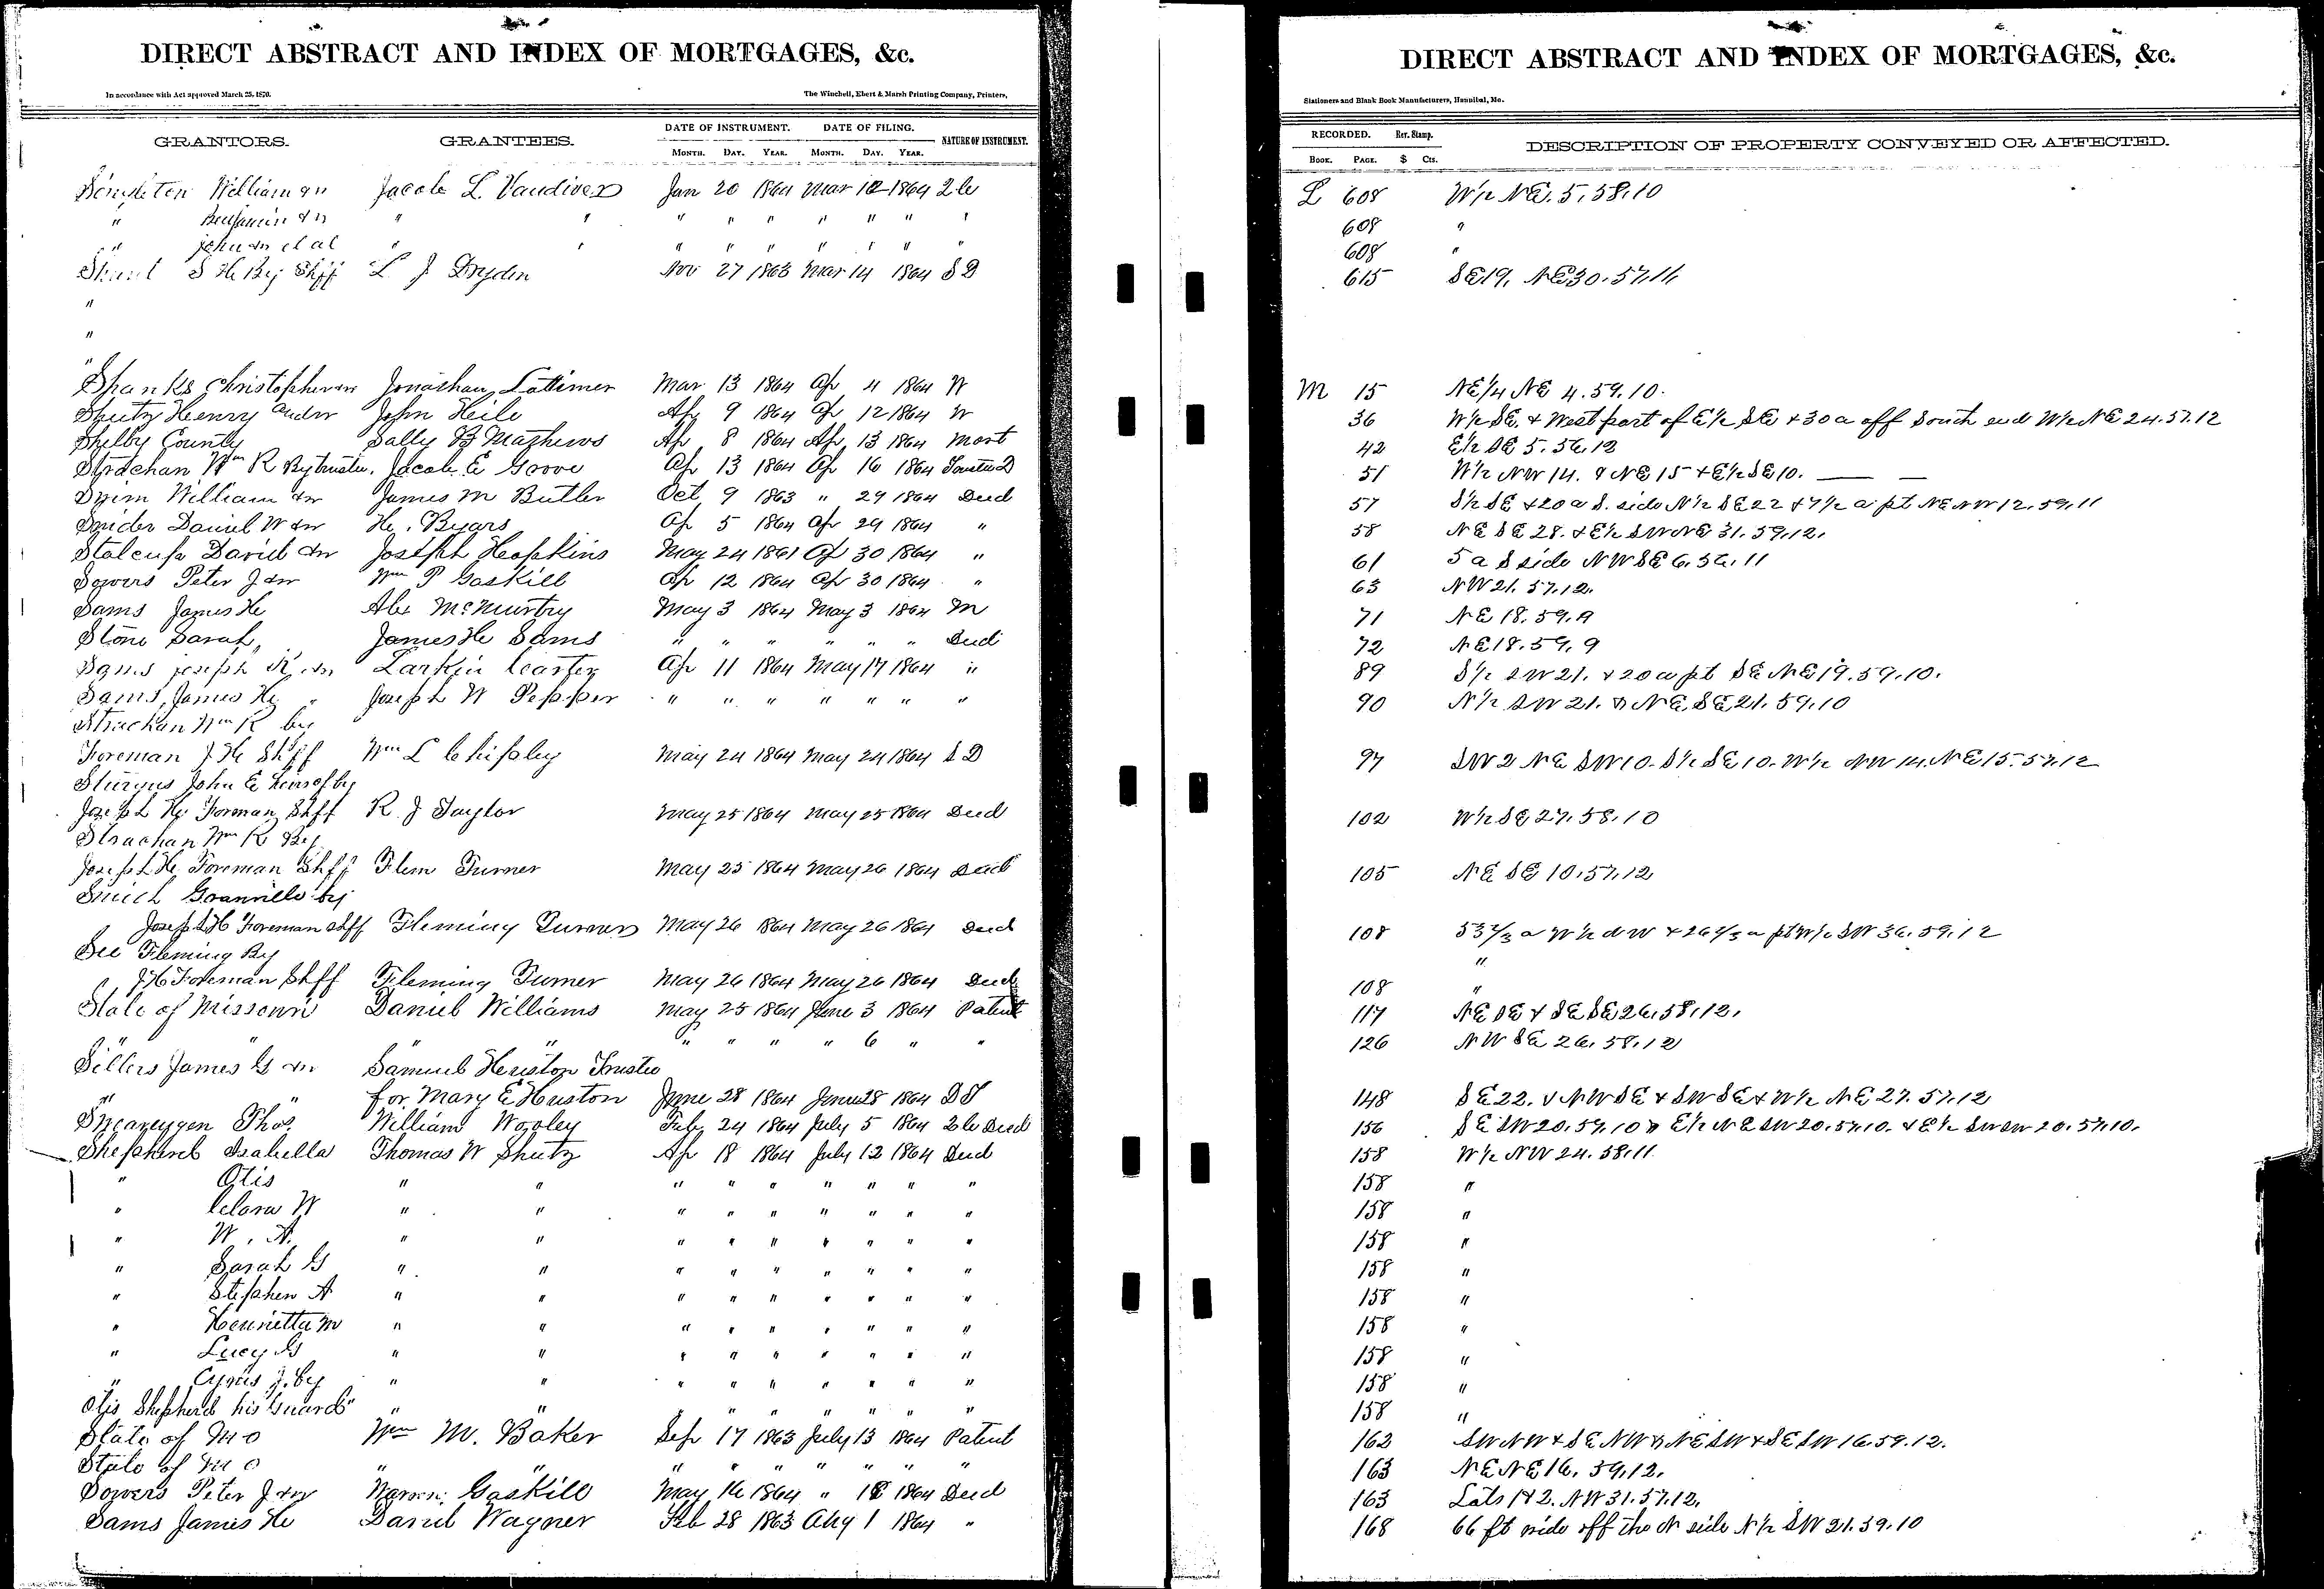 DIRECT ABSTRACT AND INDEX OF MORTGAGES, &c.
In accordance with Act approved March 25, 1870. The Winchell, Ebert & Marsh Printing Company, Printers,
GRANTORS. GRANTEES. DATE OF INSTRUMENT. DATE OF FILING. NATURE OF INSTRUMENT.
MONTH. DAY. YEAR. MONTH. DAY. YEAR.
William Jacob L. Vandiver Jan 20 1864 Mar 12 1864
" Benjamin & w " " " " " " " " "
" John & w et al " " " " " " " " "
S H By Shff L J Dryden Nov 27 1863 Mar 14 1864 S D
"
"
"
Shanks Christopher Jonathan Lattimer Mar 13 1864 Ap 4 1864 W
Shutz Henry and w John Heile Ap 9 1864 Ap 12 1864 W
Shelby County Sally B Mathews Ap 8 1864 Ap 13 1864 Mort
Strachan Wm R By trustee. Jacob E Grove Ap 13 1864 Ap 16 1864
William & w James M Butler Oct 9 1863 " 29 1864 Deed
Snider Daniel W & w H. Byars Ap 5 1864 Ap 29 1864 "
Stalcup David & w Joseph Hopkins May 24 1861 Ap 30 1864 "
Sowers Peter J & w Wm P Gaskill Ap 12 1864 Ap 30 1864 "
Sams James H Alex McMurtry May 3 1864 May 3 1864 M
Stone Sarah, James H Sams " " " " " " Deed
Sams Joseph K & w Larkin Carter Ap 11 1864 May 17 1864 "
Sams, James H " Joseph W Pepper " " " " " " "
Strachan Wm R by
Foreman J H Shff Wm L Chipley May 24 1864 May 24 1864 S D
Sturgus John E by
Joseph H Forman Shff R. J Taylor May 25 1864 May 25 1864 Deed
Strachan Wm R By
Joseph H Foreman Shff Flem Turner May 25 1864 May 26 1864 Deed
Smith Granville by
Joseph H Foreman Shff Fleming Turner May 26 1864 May 26 1864 Deed
See Fleming By
J H Foreman Shff Fleming Turner May 26 1864 May 26 1864 Deed
State of Missouri Daniel Williams May 25 1864 June 3 1864 Patent
" " " " " " 6 " "
Sillers James G & w Samuel Heuston Trustee
" for Mary E Heuston June 28 1864 June 28 1864 D T
Thos. William Wooley Feb 24 1864 July 5 1864 Deed
Shepherd Isabella Thomas W Shutz Ap 18 1864 July 12 1864 Deed
" Otis " " " " " " " " "
" Clara W " " " " " " " " "
" W. A. " " " " " " " " "
" Sarah G " " " " " " " " "
" Stephen A " " " " " " " " "
" Henrietta M " " " " " " " " "
" Lucy G " " " " " " " " "
" Cyrus J. by " " " " " " " " "
Otis Shepherd his Guard " " " " " " " " "
State of Mo Wm M. Baker Sep 17 1863 July 13 1864 Patent
State of Mo " " " " " " " " "
Sowers Peter J & w Gaskill May 16 1864 " 18 1864 Deed
Sams James H Daniel Wagner Feb 28 1863 Aug 1 1864 "
DIRECT ABSTRACT AND INDEX OF MORTGAGES, &c.
Stationers and Blank Book Manufacturers, Hannibal, Mo.
RECORDED. Rev. Stamp. DESCRIPTION OF PROPERTY CONVEYED OR AFFECTED.
BOOK. PAGE. $ Cts.
L 608 W½ NE. 5, 58, 10
608 "
608 "
615 SE 19, NE 30. 57, 11
M 15 NE¼ NE 4. 59. 10.
36 W½ SE. & West part of E½ SE & 30 a off South end W½ NE 24. 57. 12
42 E½ SE 5. 56, 12
51 W½ NW 14. & NE 15 & E½ SE 10. — —
57 S½ SE & 20 a S. side N½ SE 22 & 7½ a pt NE NW 12. 59, 11
58 NE SE 28. & E½ SW NE 31. 59, 12.
61 5 a S side NW SE 6. 56, 11
63 NW 21. 57, 12.
71 NE 18. 59, 9
72 NE 18. 59, 9
89 S½ SW 21. & 20 a pt SE NE 19. 59, 10.
90 N½ SW 21. & NE SE 21. 59, 10
97 SW 2 NE SW 10. S½ SE 10. W½ NW 14. NE 15. 57, 12
102 W½ SE 27. 58, 10
105 NE SE 10. 57, 12
108 53 a W½ & 26 a pt W½ SW 36. 59, 12
"
108 "
117 NE SE & SE SE 26, 58, 12.
126 NW SE 26. 58, 12
148 SE 22. & NW SE & SW SE & W½ NE 27. 57, 12
156 SE SW 20. 57, 10 & E½ NE SW 20. 57, 10. & E½ SW SW 20. 57, 10.
158 W½ NW 24. 58, 11
158 "
158 "
158 "
158 "
158 "
158 "
158 "
158 "
158 "
162 SW NW & SE NW & NE SW & SE SW 16. 59. 12.
163 NE NE 16. 59, 12.
163 Lots 1 & 2. NW 31. 57, 12.
168 66 ft wide off the N side N½ SW 21. 59, 10